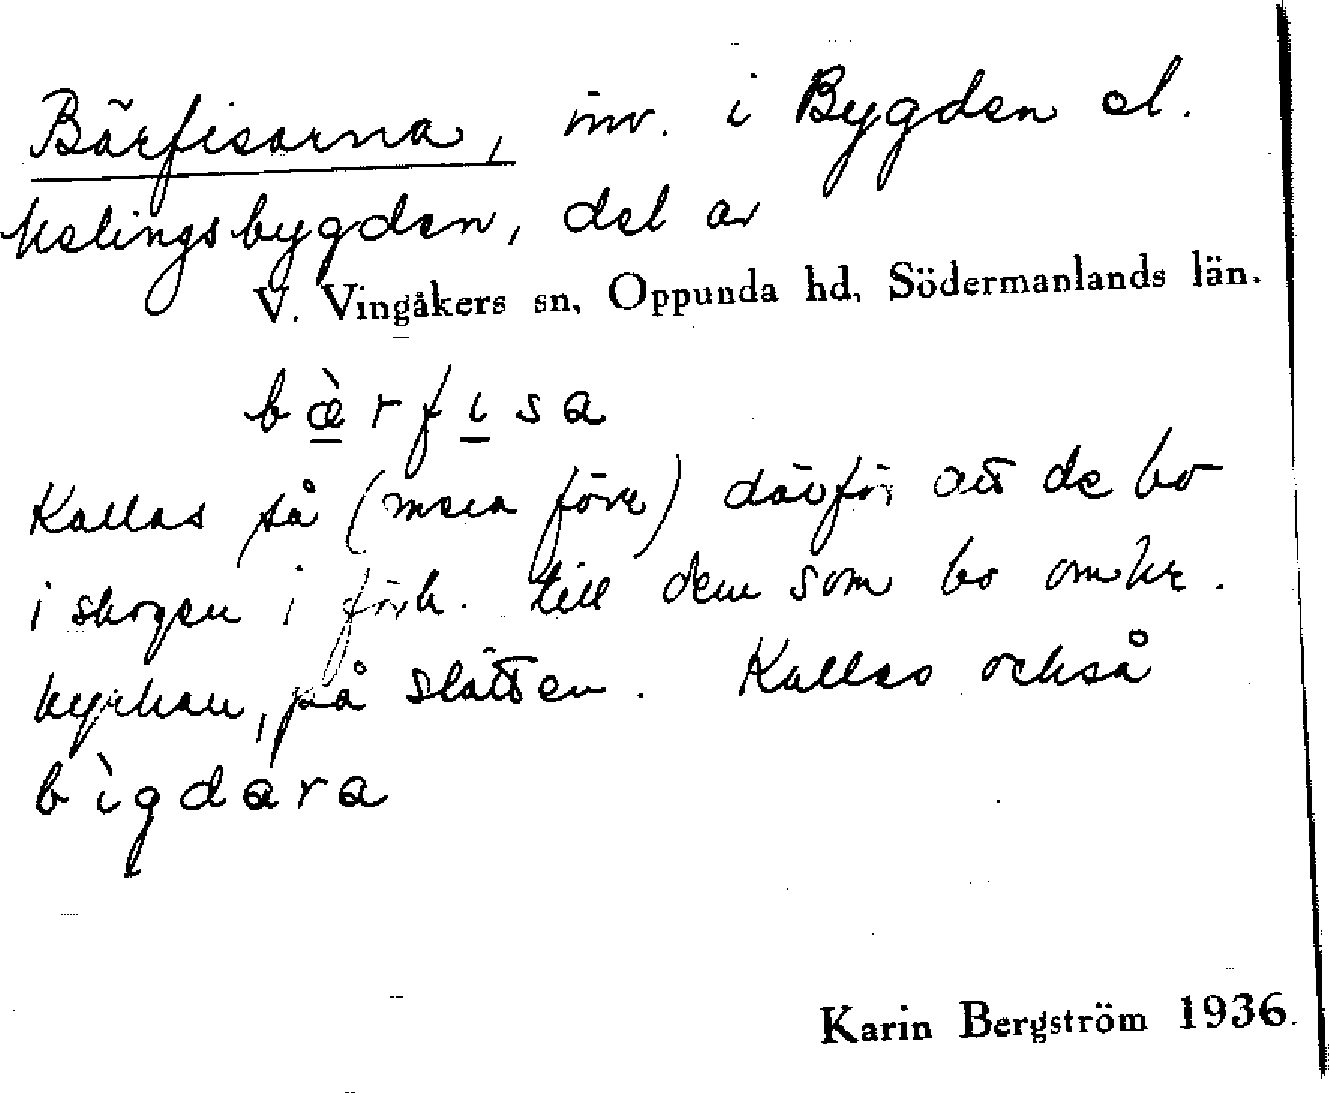 Bärfisarna, inv. i Bygden el.
Kelingsbygden, del av
V. Vingåkers sn, Oppunda hd, Södermanlands län.
bæ̀rfisa
Kallas så (mera förr) därför att de bo
i skogen i förh. till dem som bo omkr.
kyrkan, på slätten. Kallas också
bìgdara
Karin Bergström 1936.